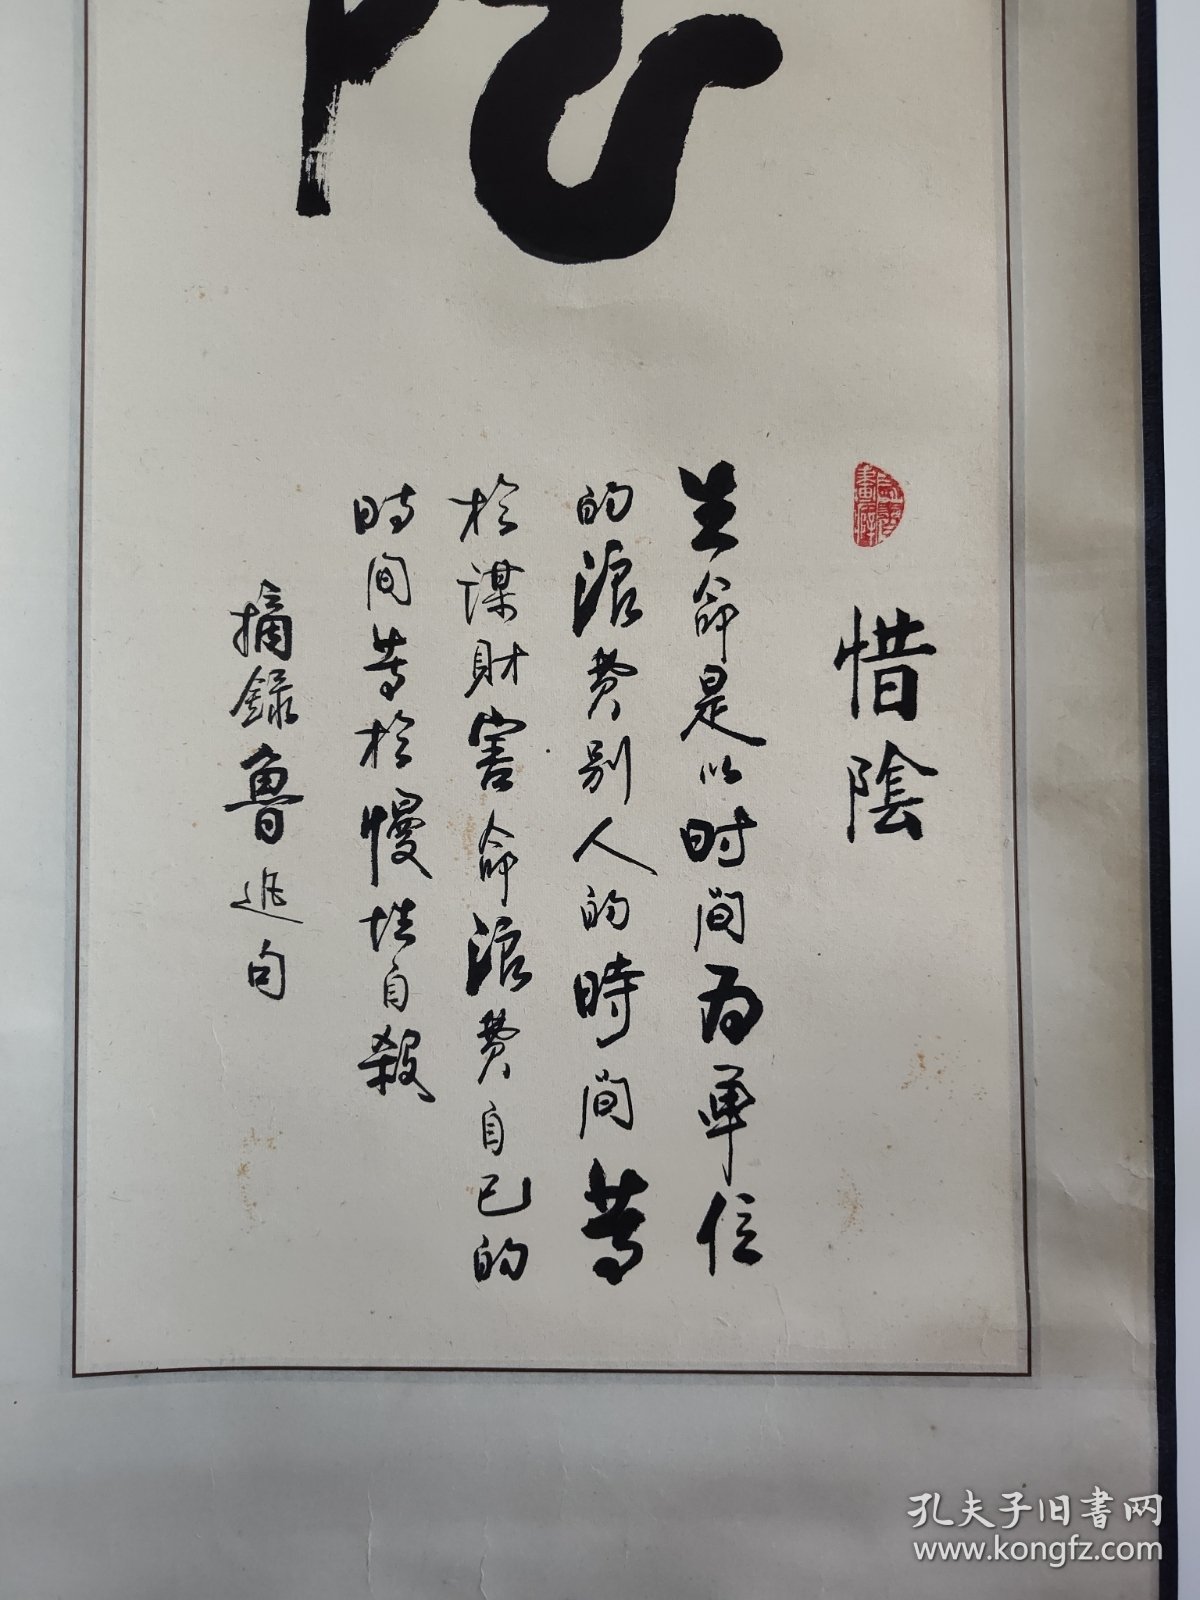 惜陰
生命是以时间为单位
的浪费别人的時间等
於谋財害命浪费自己的
時间等於慢性自殺
摘録魯迅句
孔夫子旧書网
www.kongfz.com